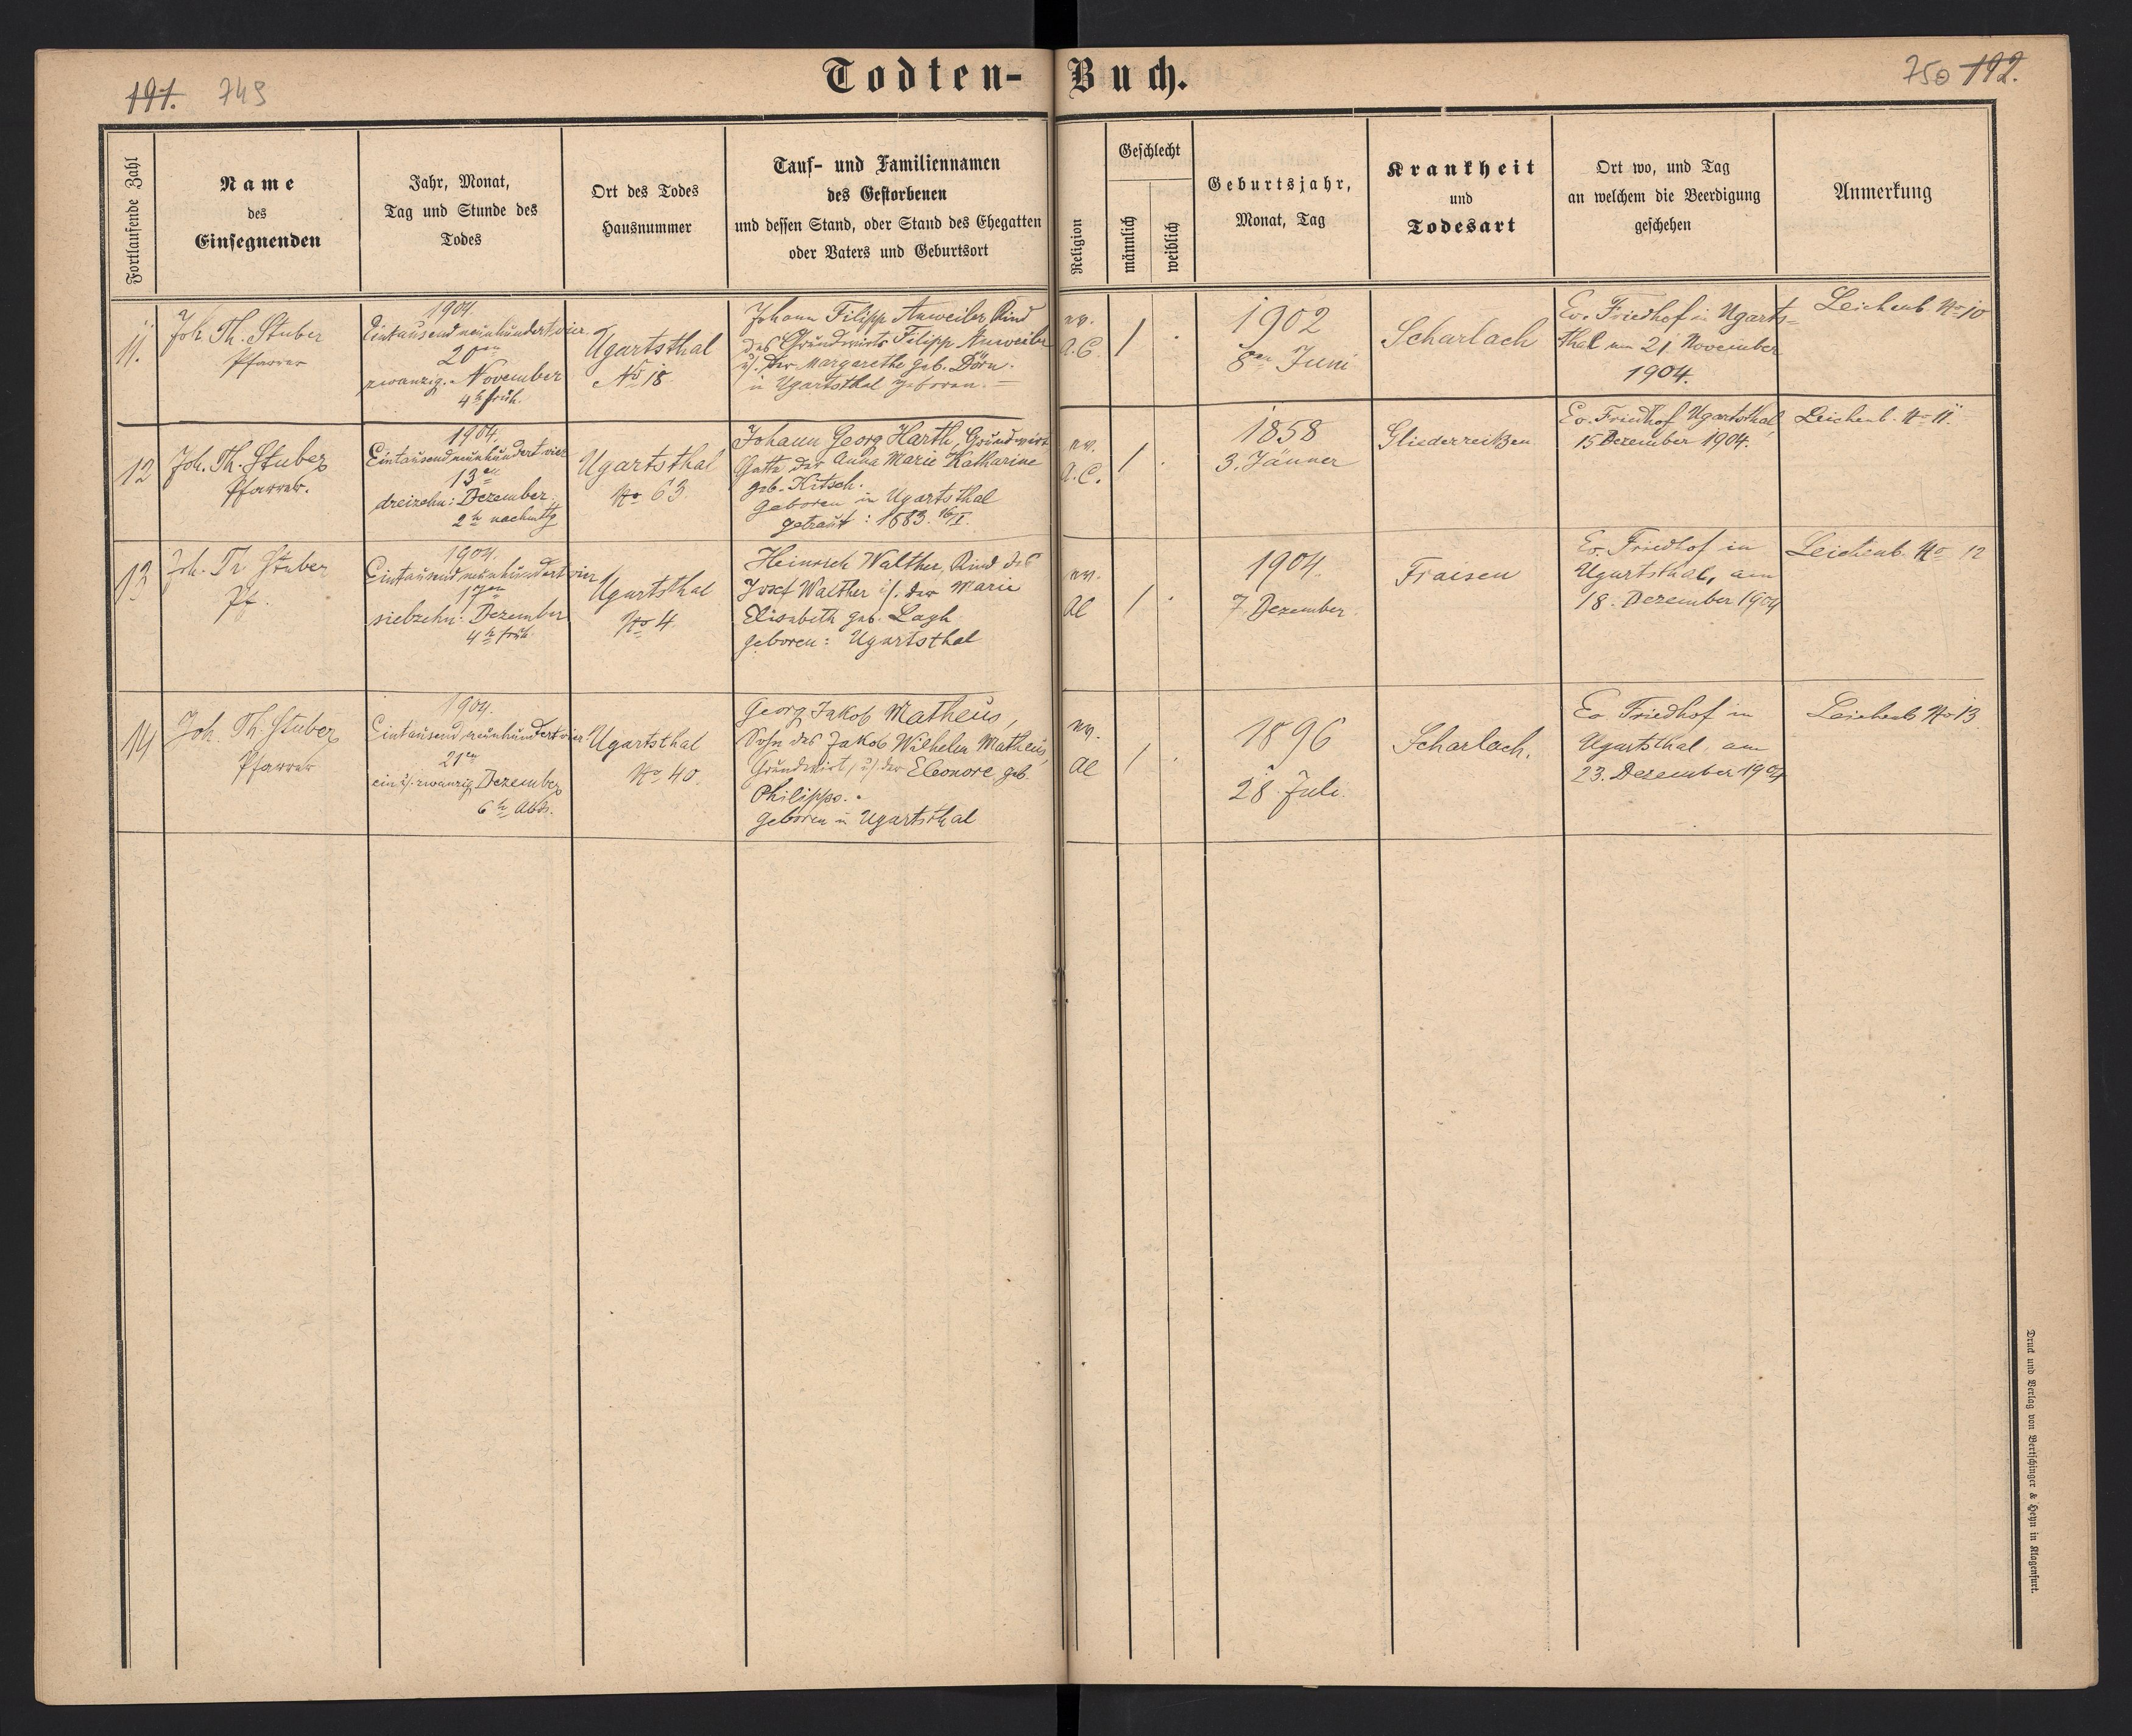 Todten-Buch.
191. 749
750 192.
Fortlaufende Zahl
Name
des
Einsegnenden
Jahr, Monat,
Tag und Stunde des
Todes
Ort des Todes
Hausnummer
Tauf- und Familiennamen
des Gestorbenen
und dessen Stand, oder Stand des Ehegatten
oder Vaters und Geburtsort
Religion
Geschlecht
männlich
weiblich
Geburtsjahr,
Monat, Tag
Krankheit
und
Todesart
Ort wo, und Tag
an welchem die Beerdigung
geschehen
Anmerkung
11.
Joh. Th. Stuber
Pfarrer
1904.
Eintausendneunhundertvier
20ten
zwanzig. November
4h früh.
Ugartsthal
No 18
Johann Filipp Anweiler, Kind
des Grundwirts Filipp Anweiler
u/. der Margarethe geb. Dörn.
in Ugartsthal geboren. =
ev.
A.C.
/ .
1902
8ten Juni
Scharlach
Ev. Friedhof in Ugarts-
thal am 21. November
1904.
Leichenb. No 10
12
Joh. Th. Stuber
Pfarrer.
1904.
Eintausendneunhundertvier
13en
dreizehn: Dezember.
2h nachmttg
Ugartsthal
No 63.
Johann Georg Harth, Grundwirt
Gatte der Anna Marie Katharine
geb. Kitsch.
geboren in Ugartsthal
getraut: 1883. 16/I.
ev.
A.C.
/ .
1858
3. Jänner
Gliederreißen
Ev. Friedhof Ugartsthal,
15 Dezember 1904.
Leichenb. No 11.
13
Joh. Th Stuber
Pf.
1904.
Eintausendneunhundertvier
17en
siebzehn: Dezember
4h früh.
Ugartsthal
No 4.
Heinrich Walther, Kind des
Josef Walther u/. der Marie
Elisabeth geb. Lagh
geboren: Ugartsthal
ev.
AC
/ .
1904.
7. Dezember.
Fraisen
Ev. Friedhof in
Ugartsthal, am
18. Dezember 1904
Leichenb. No 12
14
Joh. Th. Stuber
Pfarrer
1904.
Eintausendneunhundertvier
21en
ein u/. zwanzig Dezember
6h Abds.
Ugartsthal
No 40.
Georg Jakob Matheus,
Sohn des Jakob Wilhelm Matheus,
Grundwirt, u/. der Eleonore geb.
Philipps.
geboren in Ugartsthal
ev.
AC
/ .
1896
28. Juli.
Scharlach.
Ev. Friedhof in
Ugartsthal, am
23. Dezember 1904
Leichenb No 13
Druck und Verlag von Bertschinger & Heyn in Klagenfurt.